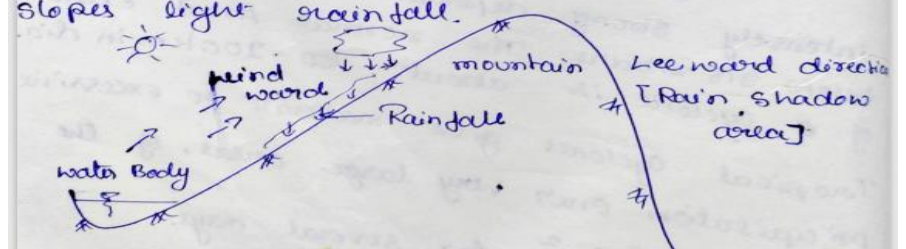 slopes light rainfall.
wind
ward
mountain
Leeward directio
[Rain shadow
area]
Rainfall
water Body